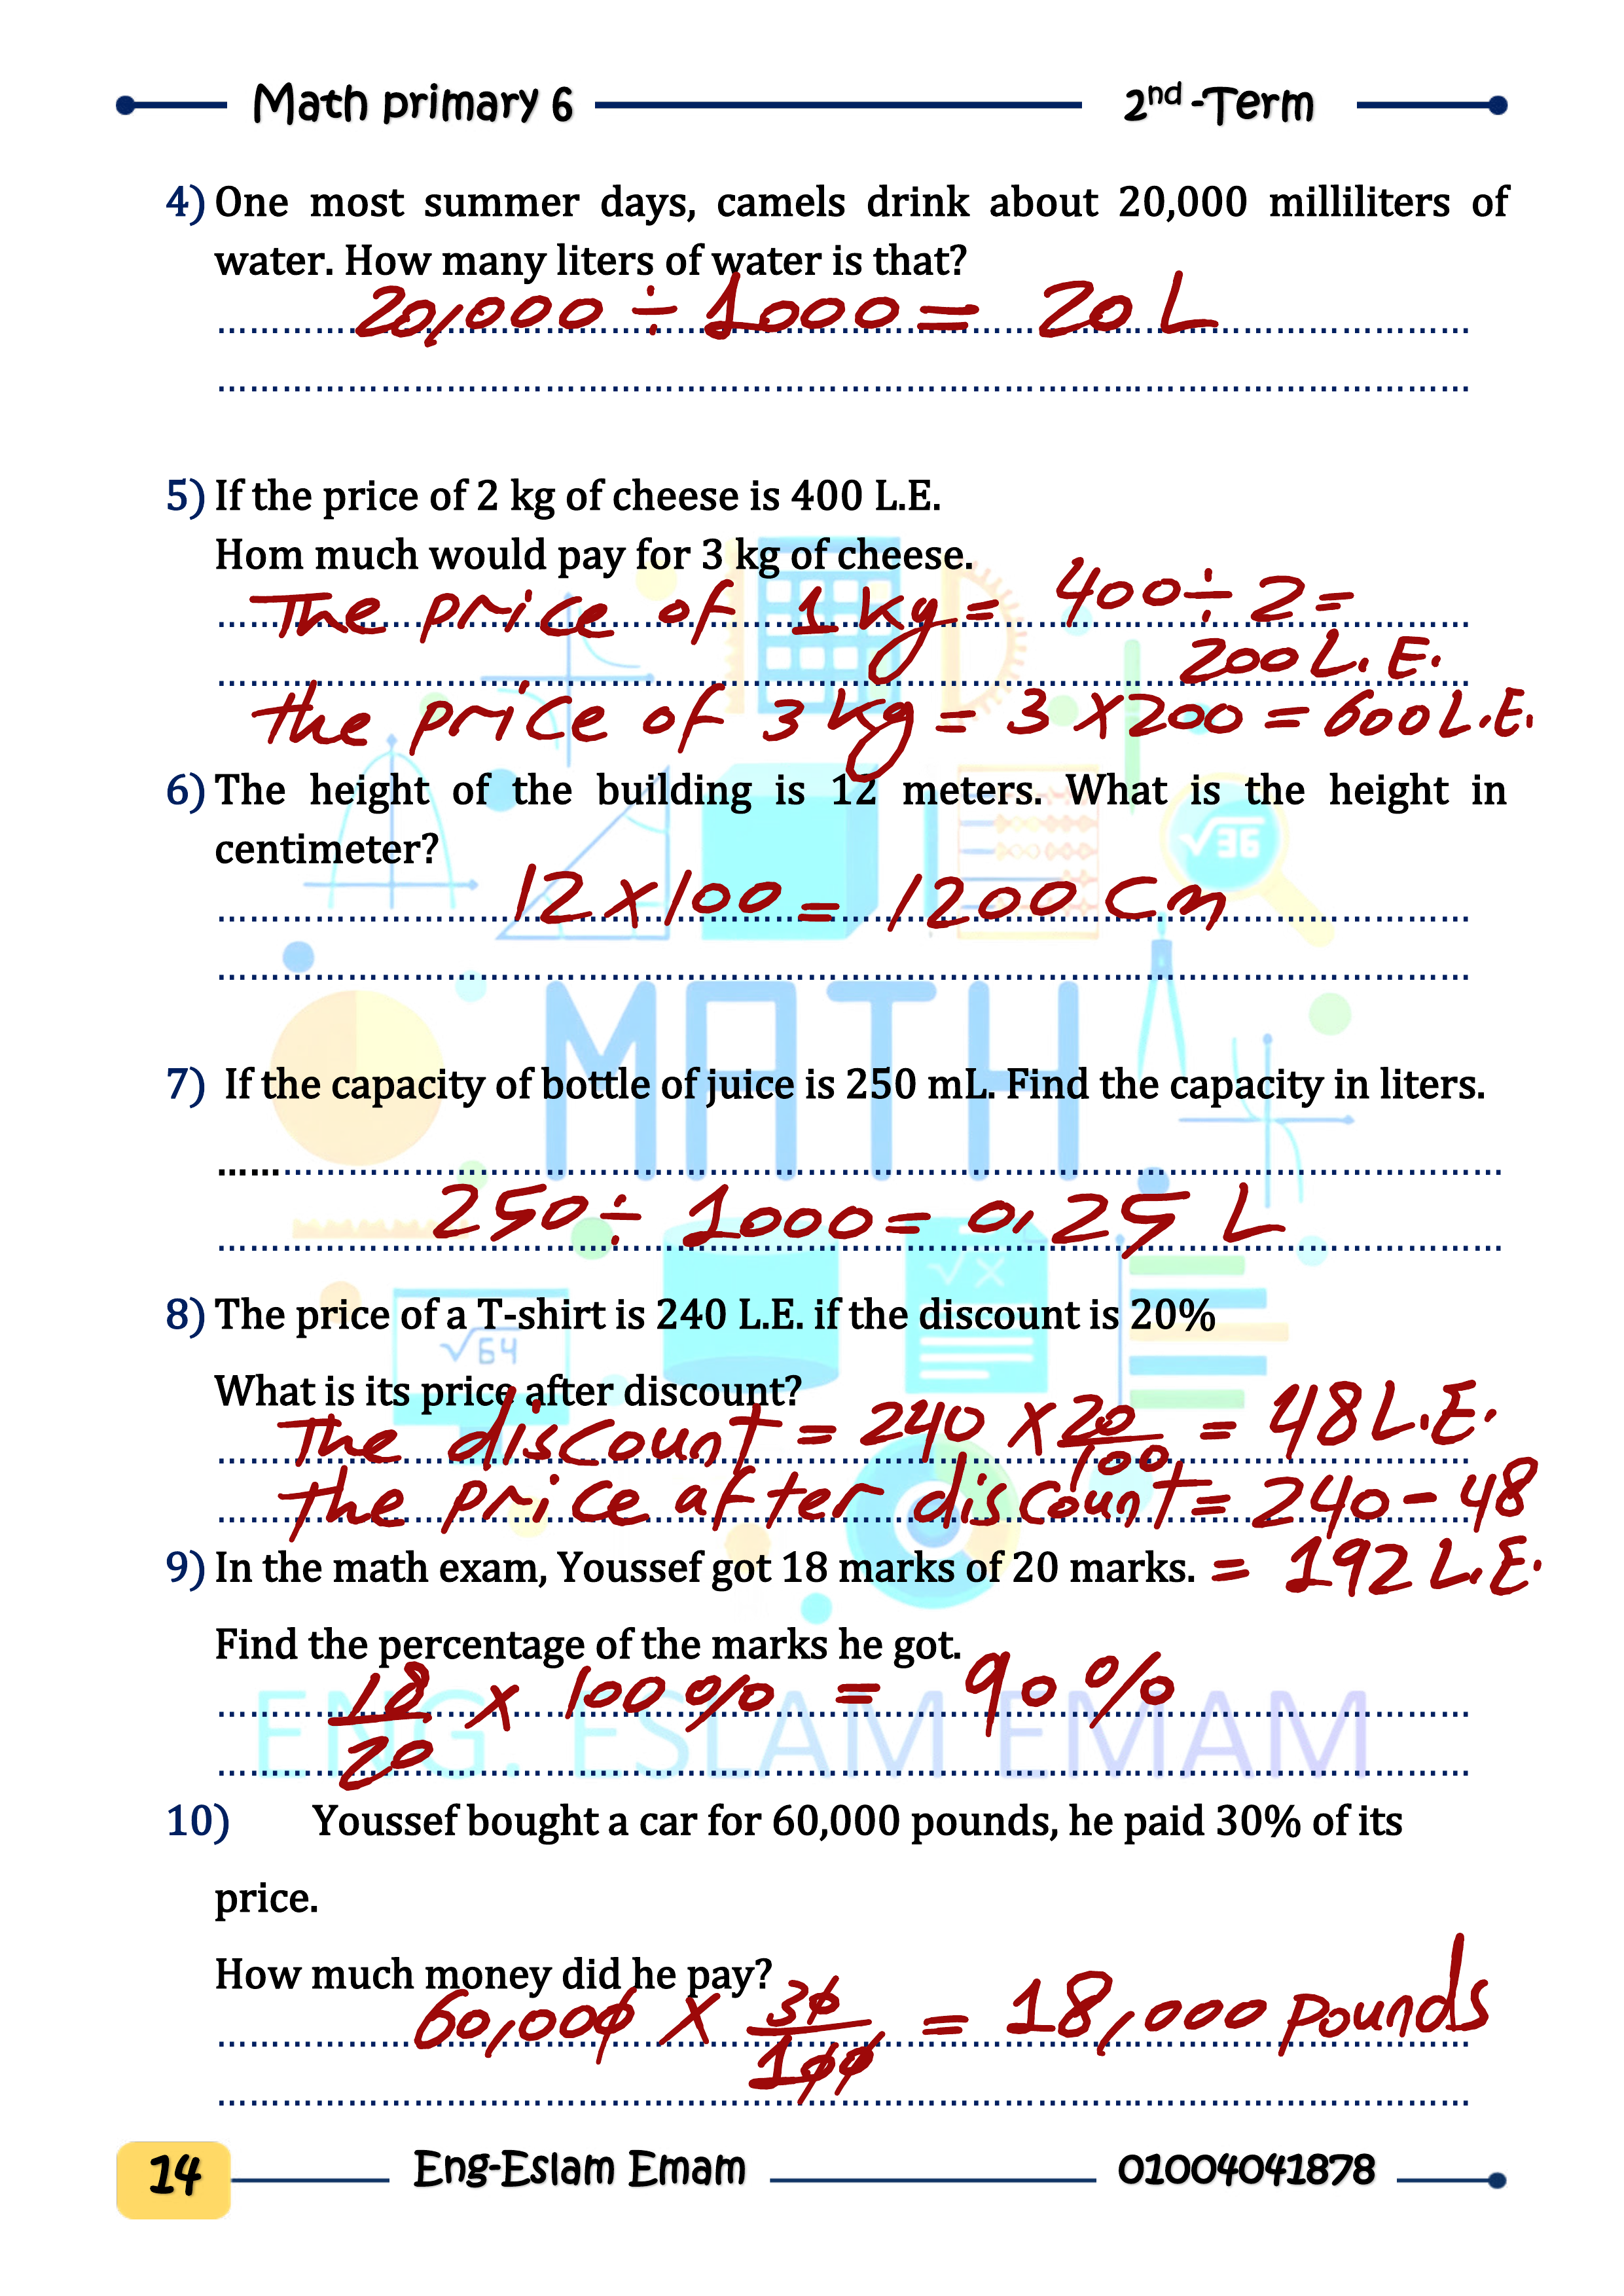 Math primary 6 2nd -Term
4) One most summer days, camels drink about 20,000 milliliters of
water. How many liters of water is that?
20,000 ÷ 1000 = 20 L
5) If the price of 2 kg of cheese is 400 L.E.
Hom much would pay for 3 kg of cheese.
The price of 1 kg = 400 ÷ 2 =
200 L.E.
the price of 3 kg = 3 × 200 = 600 L.E.
6) The height of the building is 12 meters. What is the height in
centimeter?
12 × 100 = 1200 cm
√36
MATH
7) If the capacity of bottle of juice is 250 mL. Find the capacity in liters.
250 ÷ 1000 = 0,25 L
√x
8) The price of a T-shirt is 240 L.E. if the discount is 20%
√64
What is its price after discount?
The discount = 240 × 20/100 = 48 L.E.
the price after discount = 240 - 48
9) In the math exam, Youssef got 18 marks of 20 marks. = 192 L.E.
Find the percentage of the marks he got.
18/20 × 100 % = 90 %
ENG. ESLAM EMAM
10) Youssef bought a car for 60,000 pounds, he paid 30% of its
price.
How much money did he pay?
60,000 × 30/100 = 18,000 pounds
14 Eng-Eslam Emam 01004041878